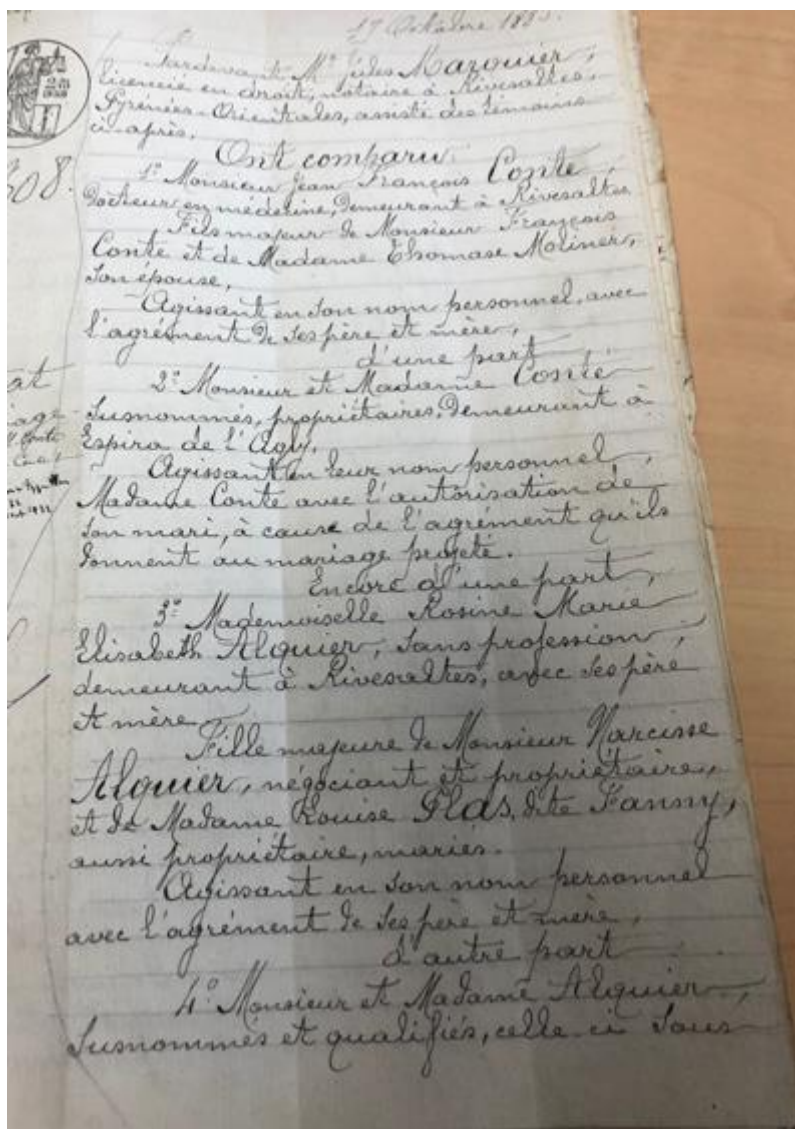 17 Octobre
Pardevant Me Jules Mazouier,
licencié en droit, notaire à Rivesaltes,
Pyrénées-Orientales, assisté des témoins
ci-après.
Ont comparu:
308.
1° Monsieur Jean François Conte,
Docteur en médecine, demeurant à Rivesaltes
Fils majeur de Monsieur François
Conte et de Madame Thomase Moliner,
son épouse,
Agissant en son nom personnel, avec
l'agrément de ses père et mère,
d'une part
2° Monsieur et Madame Conte
susnommés, propriétaires, demeurant à
Espira de l'Agly,
Agissant en leur nom personnel,
Madame Conte avec l'autorisation de
son mari, à cause de l'agrément qu'ils
donnent au mariage projeté.
Encore d'une part,
3° Mademoiselle Rosine Marie
Elisabeth Alquier, sans profession,
demeurant à Rivesaltes, avec ses père
et mère
Fille majeure de Monsieur Narcisse
Alquier, négociant et propriétaire,
et de Madame Louise Glas, dite Fanny,
aussi propriétaire, mariés.
Agissant en son nom personnel
avec l'agrément de ses père et mère,
d'autre part
4° Monsieur et Madame Alquier,
susnommés et qualifiés, celle-ci sous